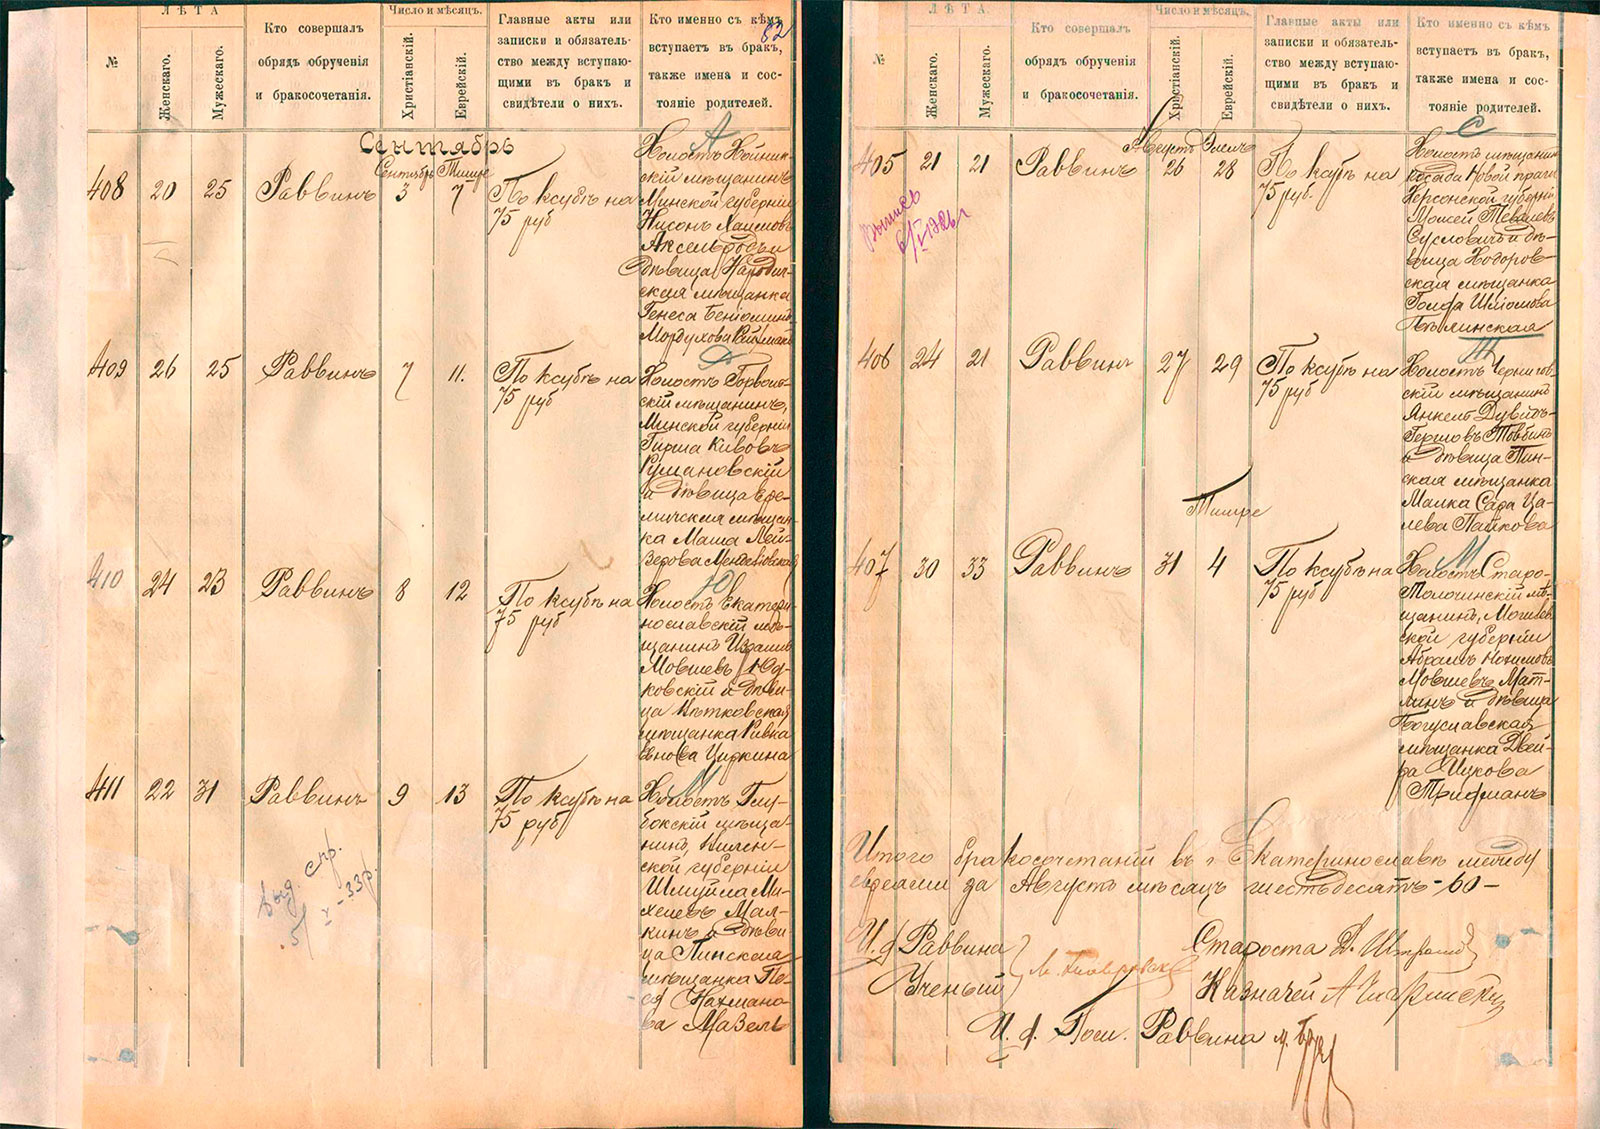 82
№
ЛѢТА
Женскаго.
Мужескаго.
Кто совершалъ
обрядъ обрученія
и бракосочетанія.
Число и мѣсяцъ.
Христіанскій.
Еврейскій.
Главные акты или
записки и обязатель-
ство между вступаю-
щими въ бракъ и
свидѣтели о нихъ.
Кто именно съ кѣмъ
вступаетъ въ бракъ,
также имена и сос-
тояніе родителей.
Сентябрь
Сентябрь Тишре
408 20 25 Раввинъ 3 7 По ксубѣ на
75 руб
А
Холостъ Хойник-
скій мѣщанинъ
Минской губерніи
Нисонъ Хаимовъ
Аксельродъ и
дѣвица Народич-
ская мѣщанка
Генеса Беніоминъ
Мордухова
409 26 25 Раввинъ 7 11. По ксубѣ на
75 руб
Холостъ Горволь-
скій мѣщанинъ,
Минской губерніи
Гирша Кивовъ
Румановскій
и дѣвица Бре-
личская мѣщан-
ка Маша Лей-
зерова
410 24 23 Раввинъ 8 12 По ксубѣ на
75 руб
Ю
Холостъ Екатери-
нославскій мѣ-
щанинъ Израиль
Мовшевъ Юд-
ковскій и дѣви-
ца Вѣтковская
мѣщанка Ривка
Циркина
411 22 31 Раввинъ 9 13 По ксубѣ на
75 руб
М
Холостъ Глу-
бокскій мѣща-
нинъ, Вилен-
ской губерніи
Шмуйла Ми-
хелевъ Мал-
кинъ и дѣви-
ца Пинская
мѣщанка Пе-
ся Нахмано-
ва Мазель
выд. спр.
5/V-33р.
№
ЛѢТА.
Женскаго.
Мужескаго.
Кто совершалъ
обрядъ обрученія
и бракосочетанія.
Число и мѣсяцъ.
Христіанскій.
Еврейскій.
Главные акты или
записки и обязатель-
ство между вступаю-
щими въ бракъ и
свидѣтели о нихъ.
Кто именно съ кѣмъ
вступаетъ въ бракъ,
также имена и сос-
тояніе родителей.
Августъ Элулъ
405 21 21 Раввинъ 26 28 По ксубѣ на
75 руб.
Выпись
6/V 1926 г
С
Холостъ мѣщанинъ
посада Новой Праги
Херсонской губерніи
Мойсей Тевелевъ
Сусловичъ и дѣ-
вица Ходоров-
ская мѣщанка
Голда Шліомова
Бѣлинская
406 24 21 Раввинъ 27 29 По ксубѣ на
75 руб
Т
Холостъ Чернигов-
скій мѣщанинъ
Янкель Дувидъ-
Гершовъ Товбинъ
и дѣвица Пин-
ская мѣщанка
Малка Сара Ца-
лева Пашкова
Тишре
407 30 33 Раввинъ 31 4 По ксубѣ на
75 руб
М
Холостъ Старо-
Толочинскій мѣ-
щанинъ, Могилев-
ской губерніи
Абрамъ Нохимовъ
Мовшевъ Мат-
линъ и дѣвица
Богуславская
мѣщанка Двей-
ра Ицкова
Трифманъ
Итого бракосочетаній въ г Екатеринославѣ между
евреями за Августъ мѣсяцъ шестьдесятъ -60-
И. д Раввина
Ученый
Староста Д.
Казначей А
И. д. Пом. Раввина